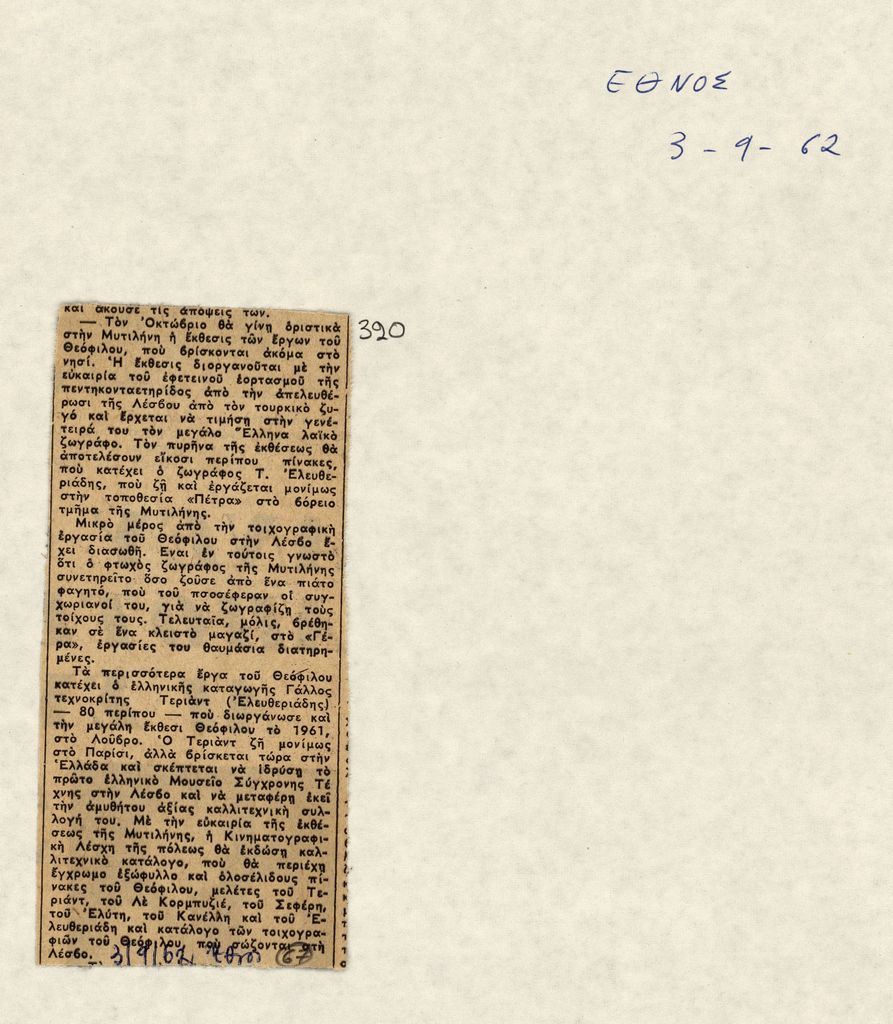 ΕΘΝΟΣ
3 - 9 - 62
390
καὶ ἄκουσε τὶς ἀπόψεις των.
— Τὸν Ὀκτώβριο θὰ γίνῃ ὁριστικὰ
στὴν Μυτιλήνη ἡ ἔκθεσις τῶν ἔργων τοῦ
Θεόφιλου, ποὺ βρίσκονται ἀκόμα στὸ
νησί. Ἡ ἔκθεσις διοργανοῦται μὲ τὴν
εὐκαιρία τοῦ ἐφετεινοῦ ἑορτασμοῦ τῆς
πεντηκονταετηρίδος ἀπὸ τὴν ἀπελευθέ-
ρωσι τῆς Λέσβου ἀπὸ τὸν τουρκικὸ ζυ-
γό καὶ ἔρχεται νὰ τιμήσῃ στὴν γενέ-
τειρά του τὸν μεγάλο Ἕλληνα λαϊκὸ
ζωγράφο. Τὸν πυρῆνα τῆς ἐκθέσεως θὰ
ἀποτελέσουν εἴκοσι περίπου πίνακες,
ποὺ κατέχει ὁ ζωγράφος Τ. Ἐλευθε-
ριάδης, ποὺ ζῇ καὶ ἐργάζεται μονίμως
στὴν τοποθεσία «Πέτρα» στὸ βόρειο
τμῆμα τῆς Μυτιλήνης.
Μικρὸ μέρος ἀπὸ τὴν τοιχογραφικὴ
ἐργασία τοῦ Θεόφιλου στὴν Λέσβο ἔ-
χει διασωθῆ. Εναι ἐν τούτοις γνωστὸ
ὅτι ὁ φτωχὸς ζωγράφος τῆς Μυτιλήνης
συνετηρεῖτο ὅσο ζοῦσε ἀπὸ ἕνα πιάτο
φαγητό, ποὺ τοῦ πσοσέφεραν οἱ συγ-
χωριανοί του, γιὰ νὰ ζωγραφίζῃ τοὺς
τοίχους τους. Τελευταῖα, μόλις, βρέθη-
καν σὲ ἕνα κλειστὸ μαγαζί, στὸ «Γέ-
ρα», ἐργασίες του θαυμάσια διατηρη-
μένες.
Τὰ περισσότερα ἔργα τοῦ Θεόφιλου
κατέχει ὁ ἑλληνικῆς καταγωγῆς Γάλλος
τεχνοκρίτης Τεριὰντ (Ἐλευθεριάδης)
— 80 περίπου — ποὺ διωργάνωσε καὶ
τὴν μεγάλη ἔκθεσι Θεόφιλου τὸ 1961,
στὸ Λοῦβρο. Ὁ Τεριὰντ ζῆ μονίμως
στὸ Παρίσι, ἀλλὰ βρίσκεται τώρα στὴν
Ἑλλάδα καὶ σκέπτεται νὰ ἱδρύσῃ τὸ
πρῶτο ἑλληνικὸ Μουσεῖο Σύγχρονης Τέ
χνης στὴν Λέσβο καὶ νὰ μεταφέρῃ ἐκεῖ
τὴν ἀμυθήτου ἀξίας καλλιτεχνικὴ συλ-
λογή του. Μὲ τὴν εὐκαιρία τῆς ἐκθέ-
σεως τῆς Μυτιλήνης, ἡ Κινηματογραφι-
κὴ Λέσχη τῆς πόλεως θὰ ἐκδώσῃ καλ-
λιτεχνικὸ κατάλογο, ποὺ θὰ περιέχῃ
ἔγχρωμο ἐξώφυλλο καὶ ὁλοσέλιδους πί-
νακες τοῦ Θεόφιλου, μελέτες τοῦ Τε-
ριάντ, τοῦ Λὲ Κορμπυζιέ, τοῦ Σεφέρη,
τοῦ Ἐλύτη, τοῦ Κανέλλη καὶ τοῦ Ἐ-
λευθεριάδη καὶ κατάλογο τῶν τοιχογρα-
φιῶν τοῦ Θεόφιλου, ποὺ σώζονται στὴ
Λέσβο.
3/9/62 Ἔθνος 67